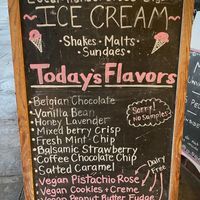 ICE CREAM
• Shakes • Malts •
Sundaes •
Today's Flavors
Belgian Chocolate
Vanilla Bean
Honey Lavender
Mixed berry Crisp
Fresh Mint • Chip
Balsamic Strawberry
Coffee Chocolate Chip
Salted Caramel
Vegan Pistachio Rose
Vegan Cookies + Creme
Vegan Peanut Butter Fudge
Sorry!
No Samples!
Dairy
Free